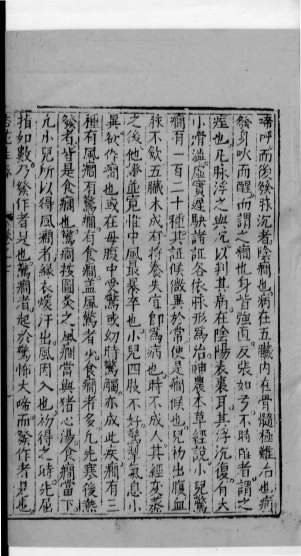 啼呼而後發脉沉者陰癇也病在五臟內在骨髓極難治也病
發身吹而醒而謂之癇也身皆強直反張如弓不時醒者謂之
痓也凡脉浮之與沉以判其病在陰陽表裏耳其浮沉復有大
小滑澁虛實遲駃諸証各依脉形為治神農本草經說小兒驚
癇有一百二十種其証候微異於常便是癇候也兒初出腹血
脉不歛五臟未成有將養失宜即為病也時不成人其經變蒸
之後他 中風最暴卒也小兒四肢不好驚掣氣息小
異欲作癇也或在母腹中受驚或幼時驚觸亦成此疾癇有三
種有風癇有驚癇有食癇盖風驚者少食癇者多凡先寒後熱
發者皆是食癇也驚癇按圖灸之風癇當與猪心湯食癇當下
凡小兒所以得風癇者緣衣煖汗出風因入也初得之時先屈
指如數乃發作者是也驚癇者起於驚怖大啼而發作者是也